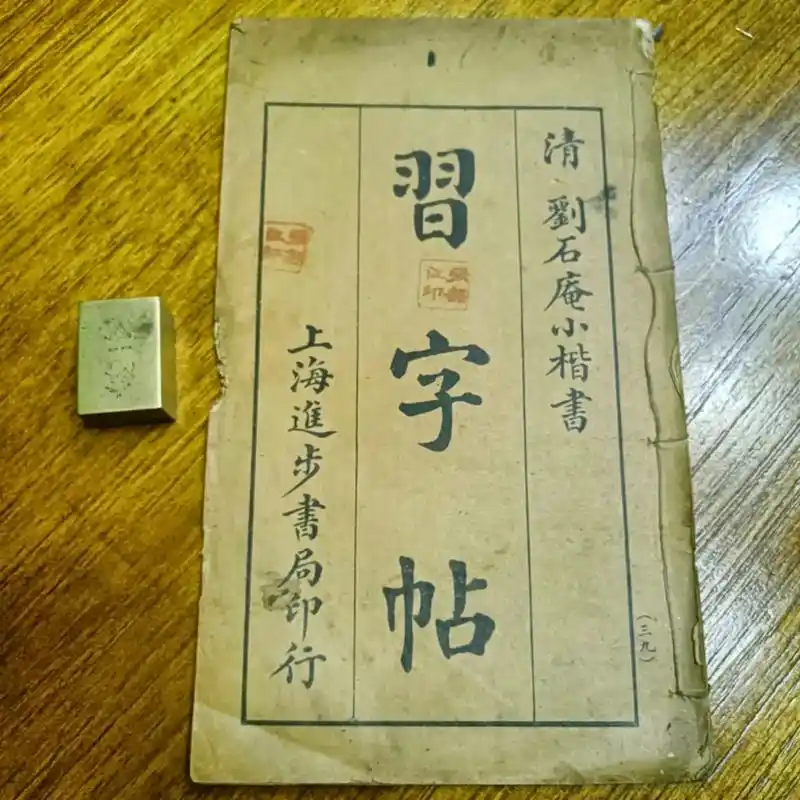 清 劉石庵小楷書
習字帖
上海進步書局印行
(三九)